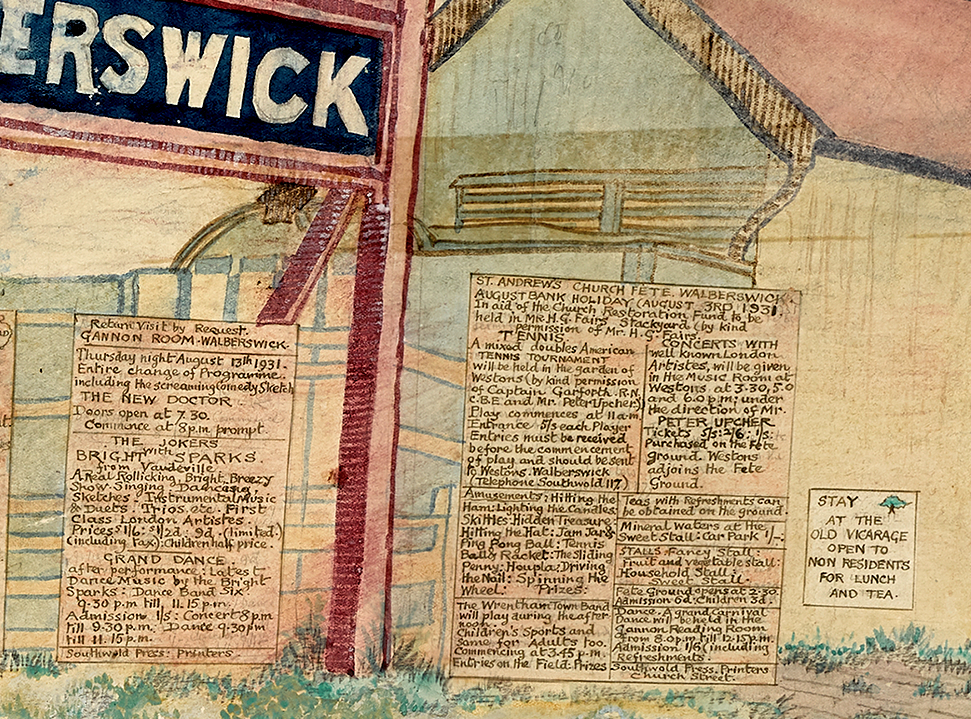 ERSWICK
Return Visit by Request.
GANNON ROOM-WALBERSWICK.
Thursday night August 13th 1931.
Entire change of Programme.
including the screaming Comedy Sketch
THE NEW DOCTOR
Doors open at 7.30.
Commence at 8 p.m. prompt
THE JOKERS
with
BRIGHT SPARKS.
from Vaudeville
A Real Rollicking, Bright Breezy
Show. Singing Dancing
Sketches. Instrumental Music
& Duets. Trios. etc. First
Class London Artistes.
Prices 1/6. 1/2d. 9d. (limited)
(including Tax). Children half price.
GRAND DANCE
after performance. Latest
Dance Music by the Bright
Sparks: Dance Band Six
9.30 p.m till, 11.15 p.m.
Admission 1/s: Concert 8pm
till 9.30p.m. Dance 9.30pm
till 11.15 p.m.
Southwold Press: Printers
ST. ANDREWS CHURCH FETE. WALBERSWICK.
AUGUST BANK HOLIDAY (AUGUST 3RD 1931.
In aid of the Church Restoration Fund to be
held in Mr. H.G. Fairs Stackyard (by kind
permission of Mr. H.G. Fairs.
TENNIS
A mixed doubles American
TENNIS TOURNAMENT
will be held in the garden of
Westons (by kind permission
of Captain Garforth. R.N.
C.B.E and Mr. Peter Upcher)
Play commences at 11 a.m.
Entrance 5/s each Player
Entries must be received
before the commencement
of play and should be sent
to Westons. Walberswick
(Telephone Southwold 117)
CONCERTS WITH
well known London
Artistes, will be given
in the Music Room at
Westons at 3.30, 5.0
and 6.0 p.m: under
the direction of Mr.
PETER UPCHER
Tickets 5/s: 2/6: 1/s:
Purchased on the Fete
ground. Westons
adjoins the Fete
Ground.
Amusements: Hitting the
Ham: Lighting the Candles:
Skittles: Hidden Treasure:
Hitting the Hat: Jam Jars:
Ping Pong Ball: Tennis
Ball & Racket: The Sliding
Penny: Houpla: Driving
the Nail: Spinning the
Wheel: Prizes:
The Wrentham Town Band
will play during the after
noon.
Children's Sports and
Some for Adults Too.
Commencing at 3.45 p.m.
Entries on the Field: Prizes
Teas with Refreshments can
be obtained on the ground.
Mineral Waters at the
Sweet Stall: Car Park 1/-.
STALLS. Fancy Stall:
Fruit and vegetable stall:
Household Stall.
Sweet Stall.
Fete Ground opens at 2.30.
Admission 6d. Children 3d.
Dance. A grand Carnival
Dance will be held in the
Gannon Reading Room
from 8.0 p.m till 12.15 p.m.
Admission 1/6 (including
Refreshments
Southwold Press: Printers
Church Street.
STAY
AT THE
OLD VICARAGE
OPEN TO
NON RESIDENTS
FOR LUNCH
AND TEA.